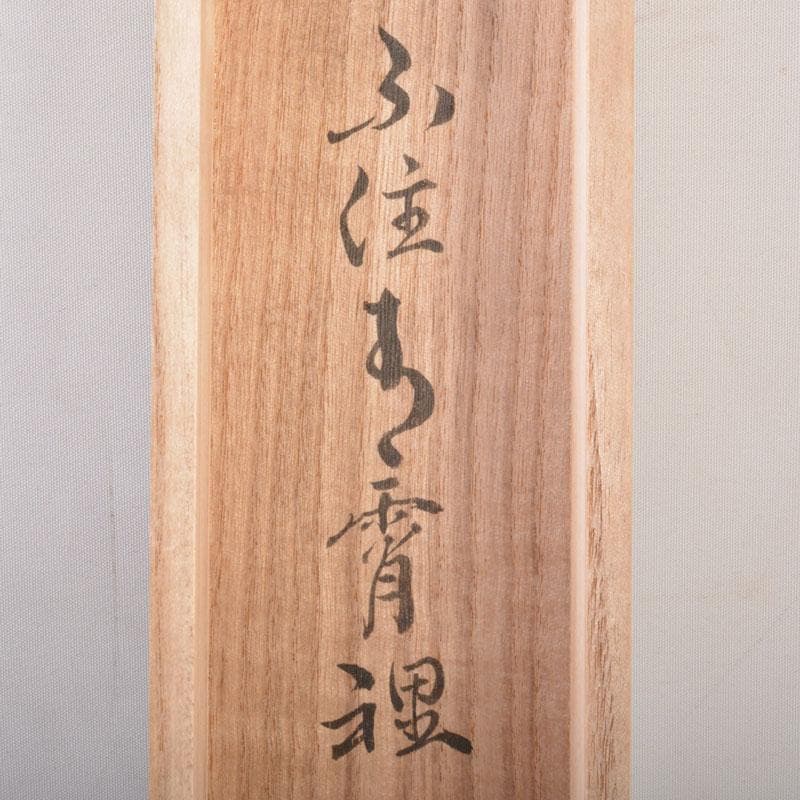 不住青霄裡